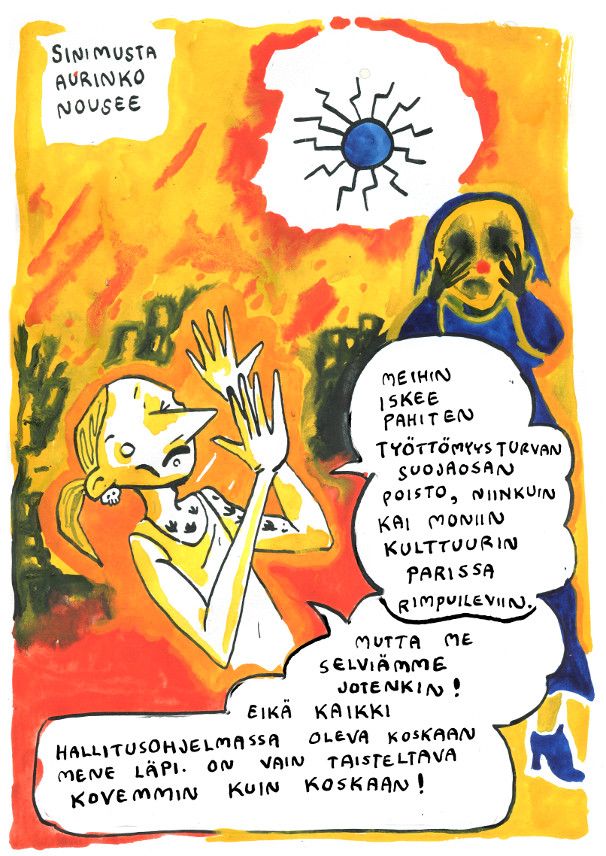 SINIMUSTA
AURINKO
NOUSEE
MEIHIN
ISKEE
PAHITEN
TYÖTTÖMYYSTURVAN
SUOJAOSAN
POISTO, NIINKUIN
KAI MONIIN
KULTTUURIN
PARISSA
RIMPUILEVIIN.
MUTTA ME
SELVIÄMME
JOTENKIN!
EIKÄ KAIKKI
HALLITUSOHJELMASSA OLEVA KOSKAAN
MENE LÄPI. ON VAIN TAISTELTAVA
KOVEMMIN KUIN KOSKAAN!